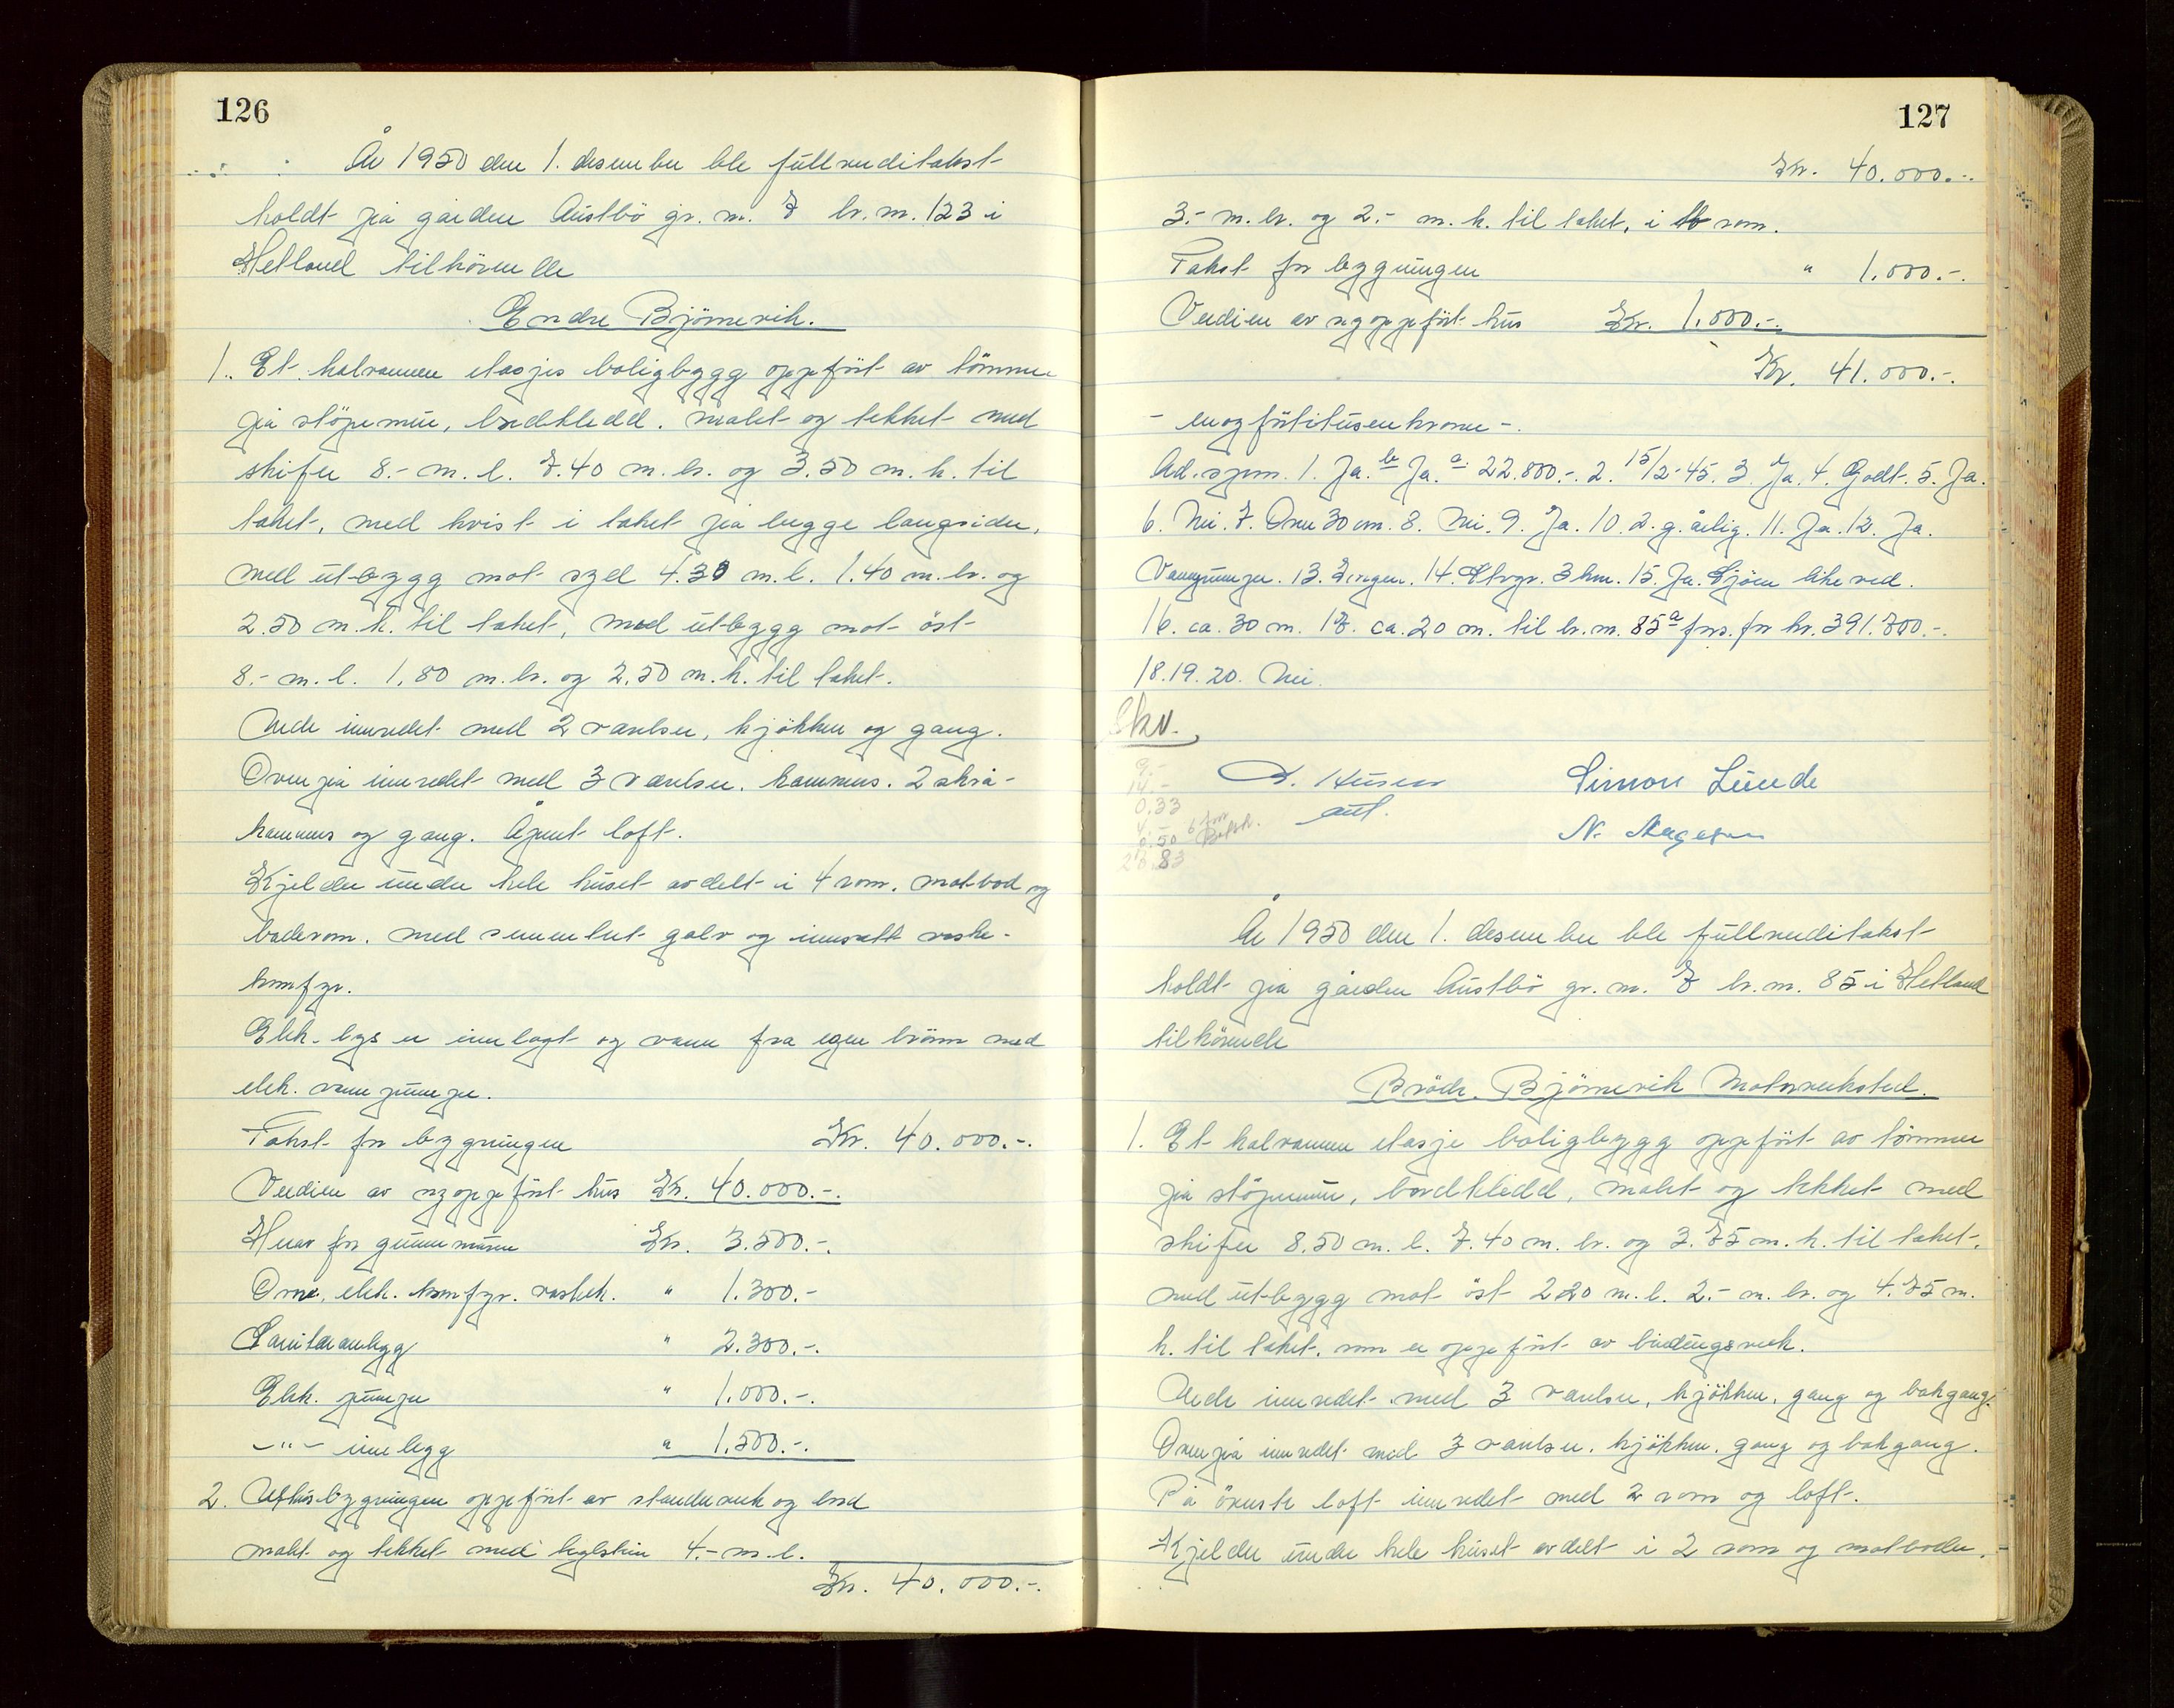 126
År 1950 den 1. desember ble fullverditakst
holdt på gården Austbö gr. nr. 7 br. nr. 123 i
Hetland tilhörende
Endre Björnevik.
1. Et halvannen etasjes boligbygg oppfört av tömmer
på stöpemur, bordkledd, malt og tekket med
skifer 8.- m. l. 7.40 m. br. og 3.50 m. h. til
taket, med kvist i taket på begge langsider,
med utbygg mot syd 4.30 m. l. 1.40 m. br. og
2.50 m. h. til taket, med utbygg mot öst
8.- m. l. 1,80 m. br. og 2,50 m. h. til taket.
Nede innredet med 2 værelser, kjökken og gang.
Ovenpå innredet med 3 værelser, kammers, 2 skrå-
kammers og gang. Åpent loft.
Kjelder under hele huset avdelt i 4 rom, matbod og
baderom, med sementert golv og innsatt vaske-
komfyr.
Elek. lys er innlagt og vann fra egen brönn med
elek. vannpumpe.
Takst for bygningen Kr. 40.000.-.
Verdien av nyoppfört hus Kr. 40.000.-.
Herav for grunnmuren Kr. 3.500.-.
Ovne, elek. komfyr. vaskek. " 1.300.-
Sanitæranlegg " 2.300.-.
Elek. pumpe " 1.000.-.
-"- innlegg " 1.500.-.
2. Uthusbygningen oppfört av stenderverk og bord
malt og tekket med teglstein 4.- m. l.
Kr. 40.000.-.
127
Kr. 40.000.-.
3.- m. br. og 2.- m. h. til taket, i rom.
Takst for bygningen " 1.000.-.
Verdien av nyoppfört hus Kr. 1.000.-.
Kr. 41.000.-.
- enogförtitusenkroner -.
Ad. spm. 1. Ja. b Ja. a. 22.800.-. 2. 15/2-45. 3. Ja. 4. Godt. 5. Ja.
6. Nei. 7. Over 30 cm. 8. Nei. 9. Ja. 10. 2. g. årlig. 11. Ja. 12. Ja.
Vannpumpe. 13. Ingen. 14. Stvgr. 3 km. 15. Ja. Sjöen like ved.
16. ca. 30 m. 17. ca. 20 m. til br. nr. 85 a fors. for kr. 391.700.-.
18. 19. 20. Nei.
Skv.
9.-
14.-
0.33
4.- 6 for
0.50
26.83
Simon Lunde
År 1950 den 1. desember ble fullverditakst
holdt på gården Austbö gr. nr. 7 br. nr. 85 i Hetland
tilhörende
Brödr. Björnevik Motorverksted.
1. Et halvannen etasje boligbygg oppfört av tömmer
på stöpemur, bordkledd, malt og tekket med
skifer 8.50 m. l. 7.40 m. br. og 3.75 m. h. til taket,
med utbygg mot öst 2.20 m. l. 2.- m. br. og 4.75 m.
h. til taket, som er oppfört av bindingsverk.
Nede innredet med 3 værelser, kjökken, gang og bakgang.
Ovenpå innredet med 3 værelser, kjökken, gang og bakgang.
På överste loft innredet med 2 rom og loft.
Kjelder under hele huset avdelt i 2 rom og matboder.